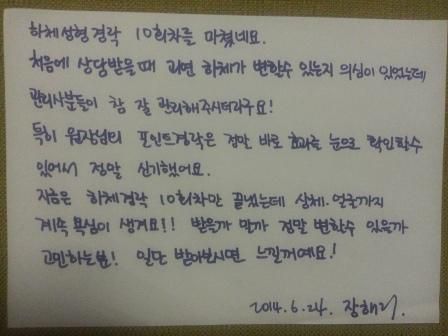 하체성형경락 10회차를 마쳤네요.
처음에 상담받을때 과연 하체가 변할수 있는지 의심이 있었는데
관리사분들이 참 잘 관리해주시더라구요!
특히 원장님의 포인트경락은 정말 바로 효과를 눈으로 확인할수
있어서 정말 신기했어요.
지금은 하체경락 10회차만 끝냈는데 상체.얼굴까지
계속 욕심이 생겨요!! 받을까 말까 정말 변할수 있을까
고민하는분! 일단 받아보시면 느낄꺼예요!
2014.6.24. 장해리.